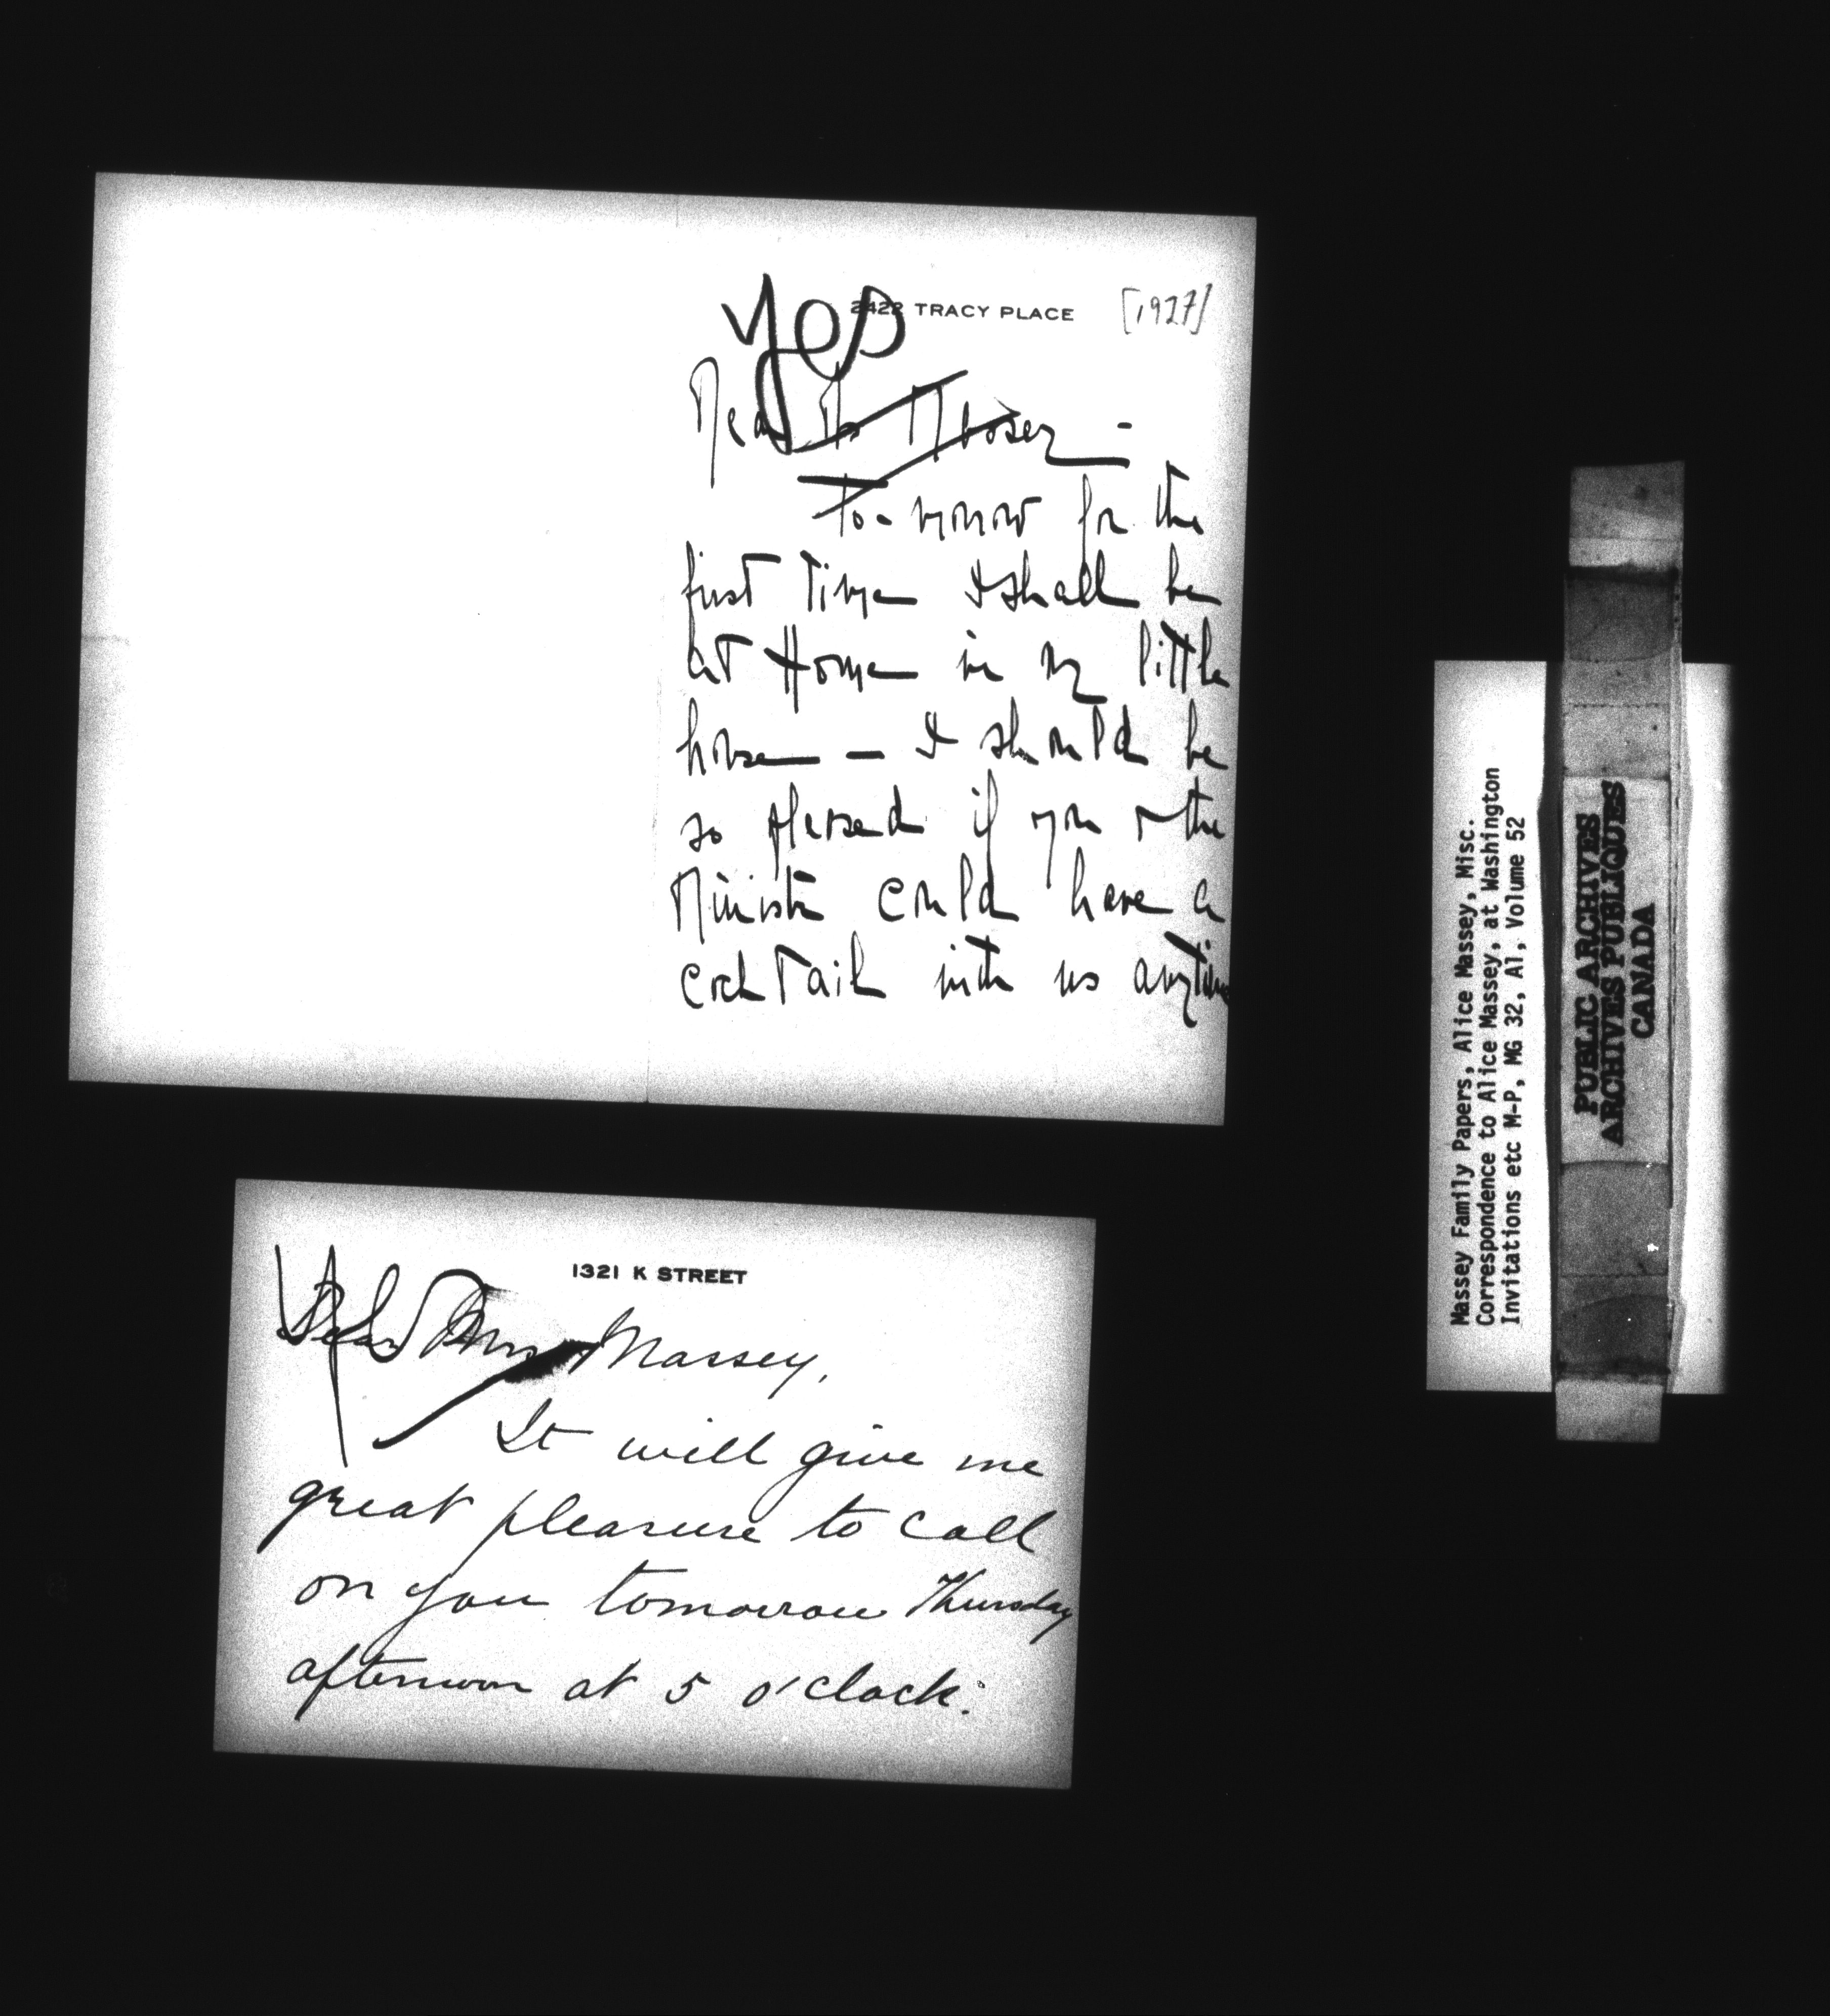 Yes
2422 TRACY PLACE [1927]
Dear Mrs Massey -
To-morrow for the
first time I shall be
at Home in my little
house — I should be
so pleased if you & the
Minister could have a
cocktail with us anytime
1321 K STREET
Dear Mrs Massey,
It will give me
great pleasure to call
on you tomorrow Thursday
afternoon at 5 o'clock.
Massey Family Papers, Alice Massey, Misc.
Correspondence to Alice Massey, at Washington
Invitations etc M-P, MG 32, A1, Volume 52
PUBLIC ARCHIVES
ARCHIVES PUBLIQUES
CANADA